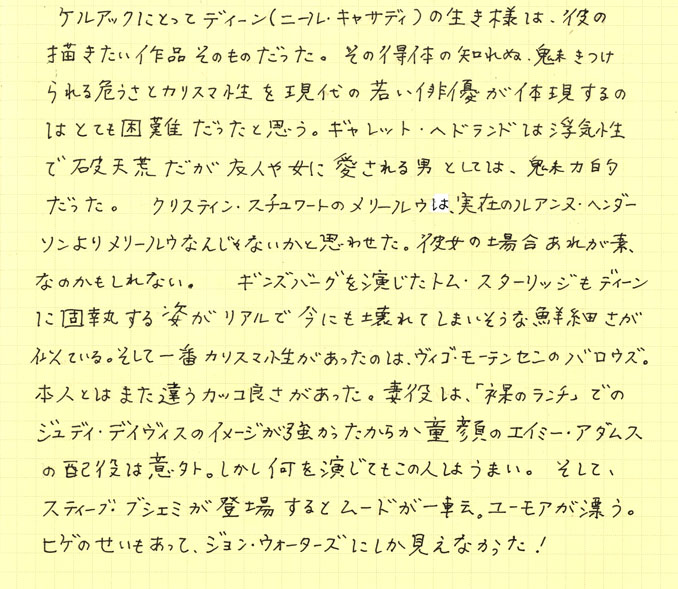 ケルアックにとってディーン(ニール・キャサディ)の生き様は、彼の
描きたい作品そのものだった。その得体の知れぬ、魅きつけ
られる危うさとカリスマ性を現代の若い俳優が体現するの
はとても困難だったと思う。ギャレット・ヘドランドは浮気性
で破天荒だが友人や女に愛される男としては、魅力的
だった。 クリスティン・スチュワートのメリールウは、実在のルアンヌ・ヘンダー
ソンよりメリールウなんじゃないかと思わせた。彼女の場合あれが素、
なのかもしれない。 ギンズバーグを演じたトム・スターリッジもディーン
に固執する姿がリアルで今にも壊れてしまいそうな鮮細さが
似ている。そして一番カリスマ性があったのは、ヴィゴ・モーテンセンのバロウズ。
本人とはまた違うカッコ良さがあった。妻役は、「裸のランチ」での
ジュディ・デイヴィスのイメージが強かったからか童顔のエイミー・アダムス
の配役は意外。しかし何を演じてもこの人はうまい。 そして、
スティーブ・ブシェミが登場するとムードが一転。ユーモアが漂う。
ヒゲのせいもあって、ジョン・ウォーターズにしか見えなかった!